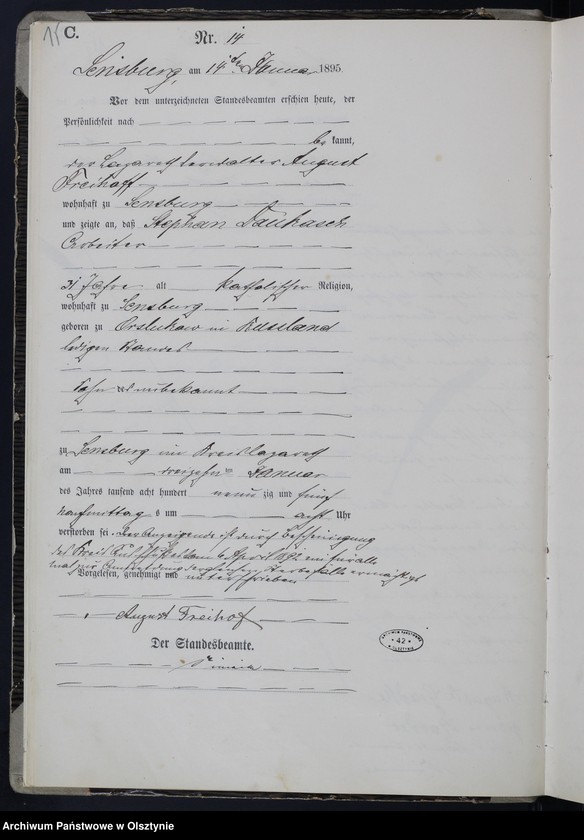 15 C.
Nr. 14
Sensburg, am 14ten Januar 1895.
Vor dem unterzeichneten Standesbeamten erschien heute, der
Persönlichkeit nach
be kannt,
der Lazarethverwalter August
Freihoff
wohnhaft zu Sensburg
und zeigte an, daß Stephan
Arbeiter
31 Jahre alt katholischer Religion,
wohnhaft zu Sensburg
geboren zu in Russland
ledigen Standes
Sohn unbekannt
zu Sensburg im Kreislazareth
am dreizehnten Januar
des Jahres tausend acht hundert neun zig und fünf
nachmittag s um acht Uhr
verstorben sei. Der Anzeigende ist durch Bescheinigung
des April 1892 ein für alle
mal zur Sterbefälle ermächtigt
Vorgelesen, genehmigt und unterschrieben
August Freihof
Der Standesbeamte.
ARCHIWUM PAŃSTWOWE
* 42 *
OLSZTYN
Archiwum Państwowe w Olsztynie